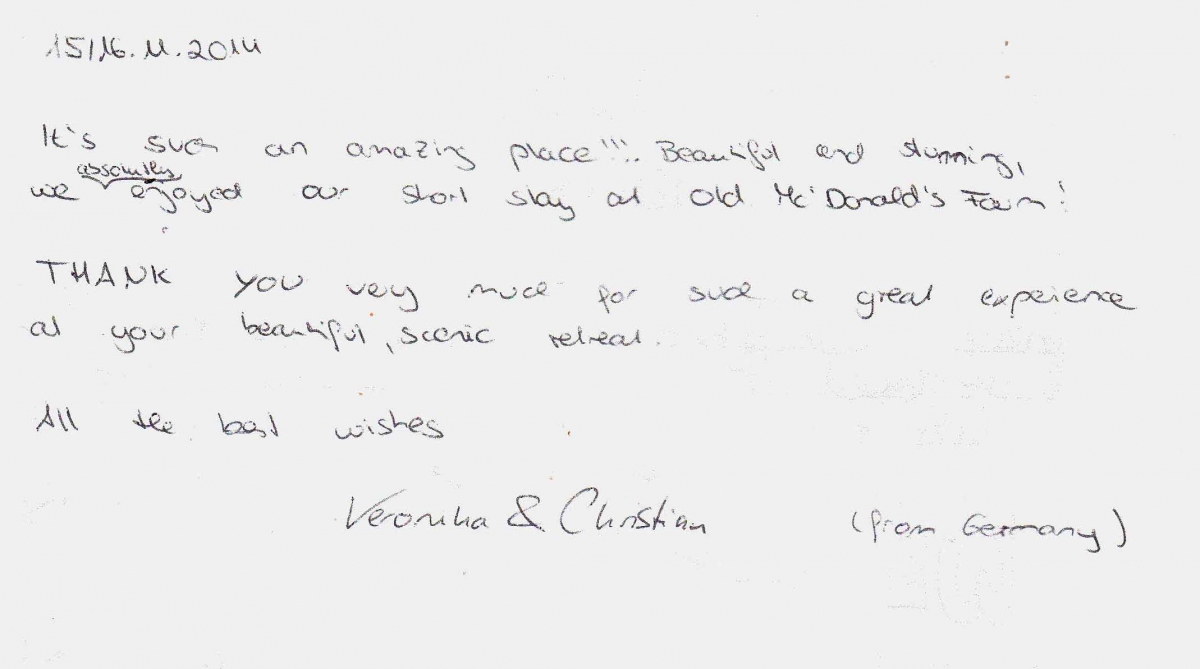 15/16.11.2014
It's such an amazing place!!!. Beautiful and stunning,
we enjoyed our short stay at Old Mc'Donald's Farm!
THANK you very much for such a great experience
at your beautiful, scenic retreat.
All the best wishes
Veronika & Christian (from Germany)